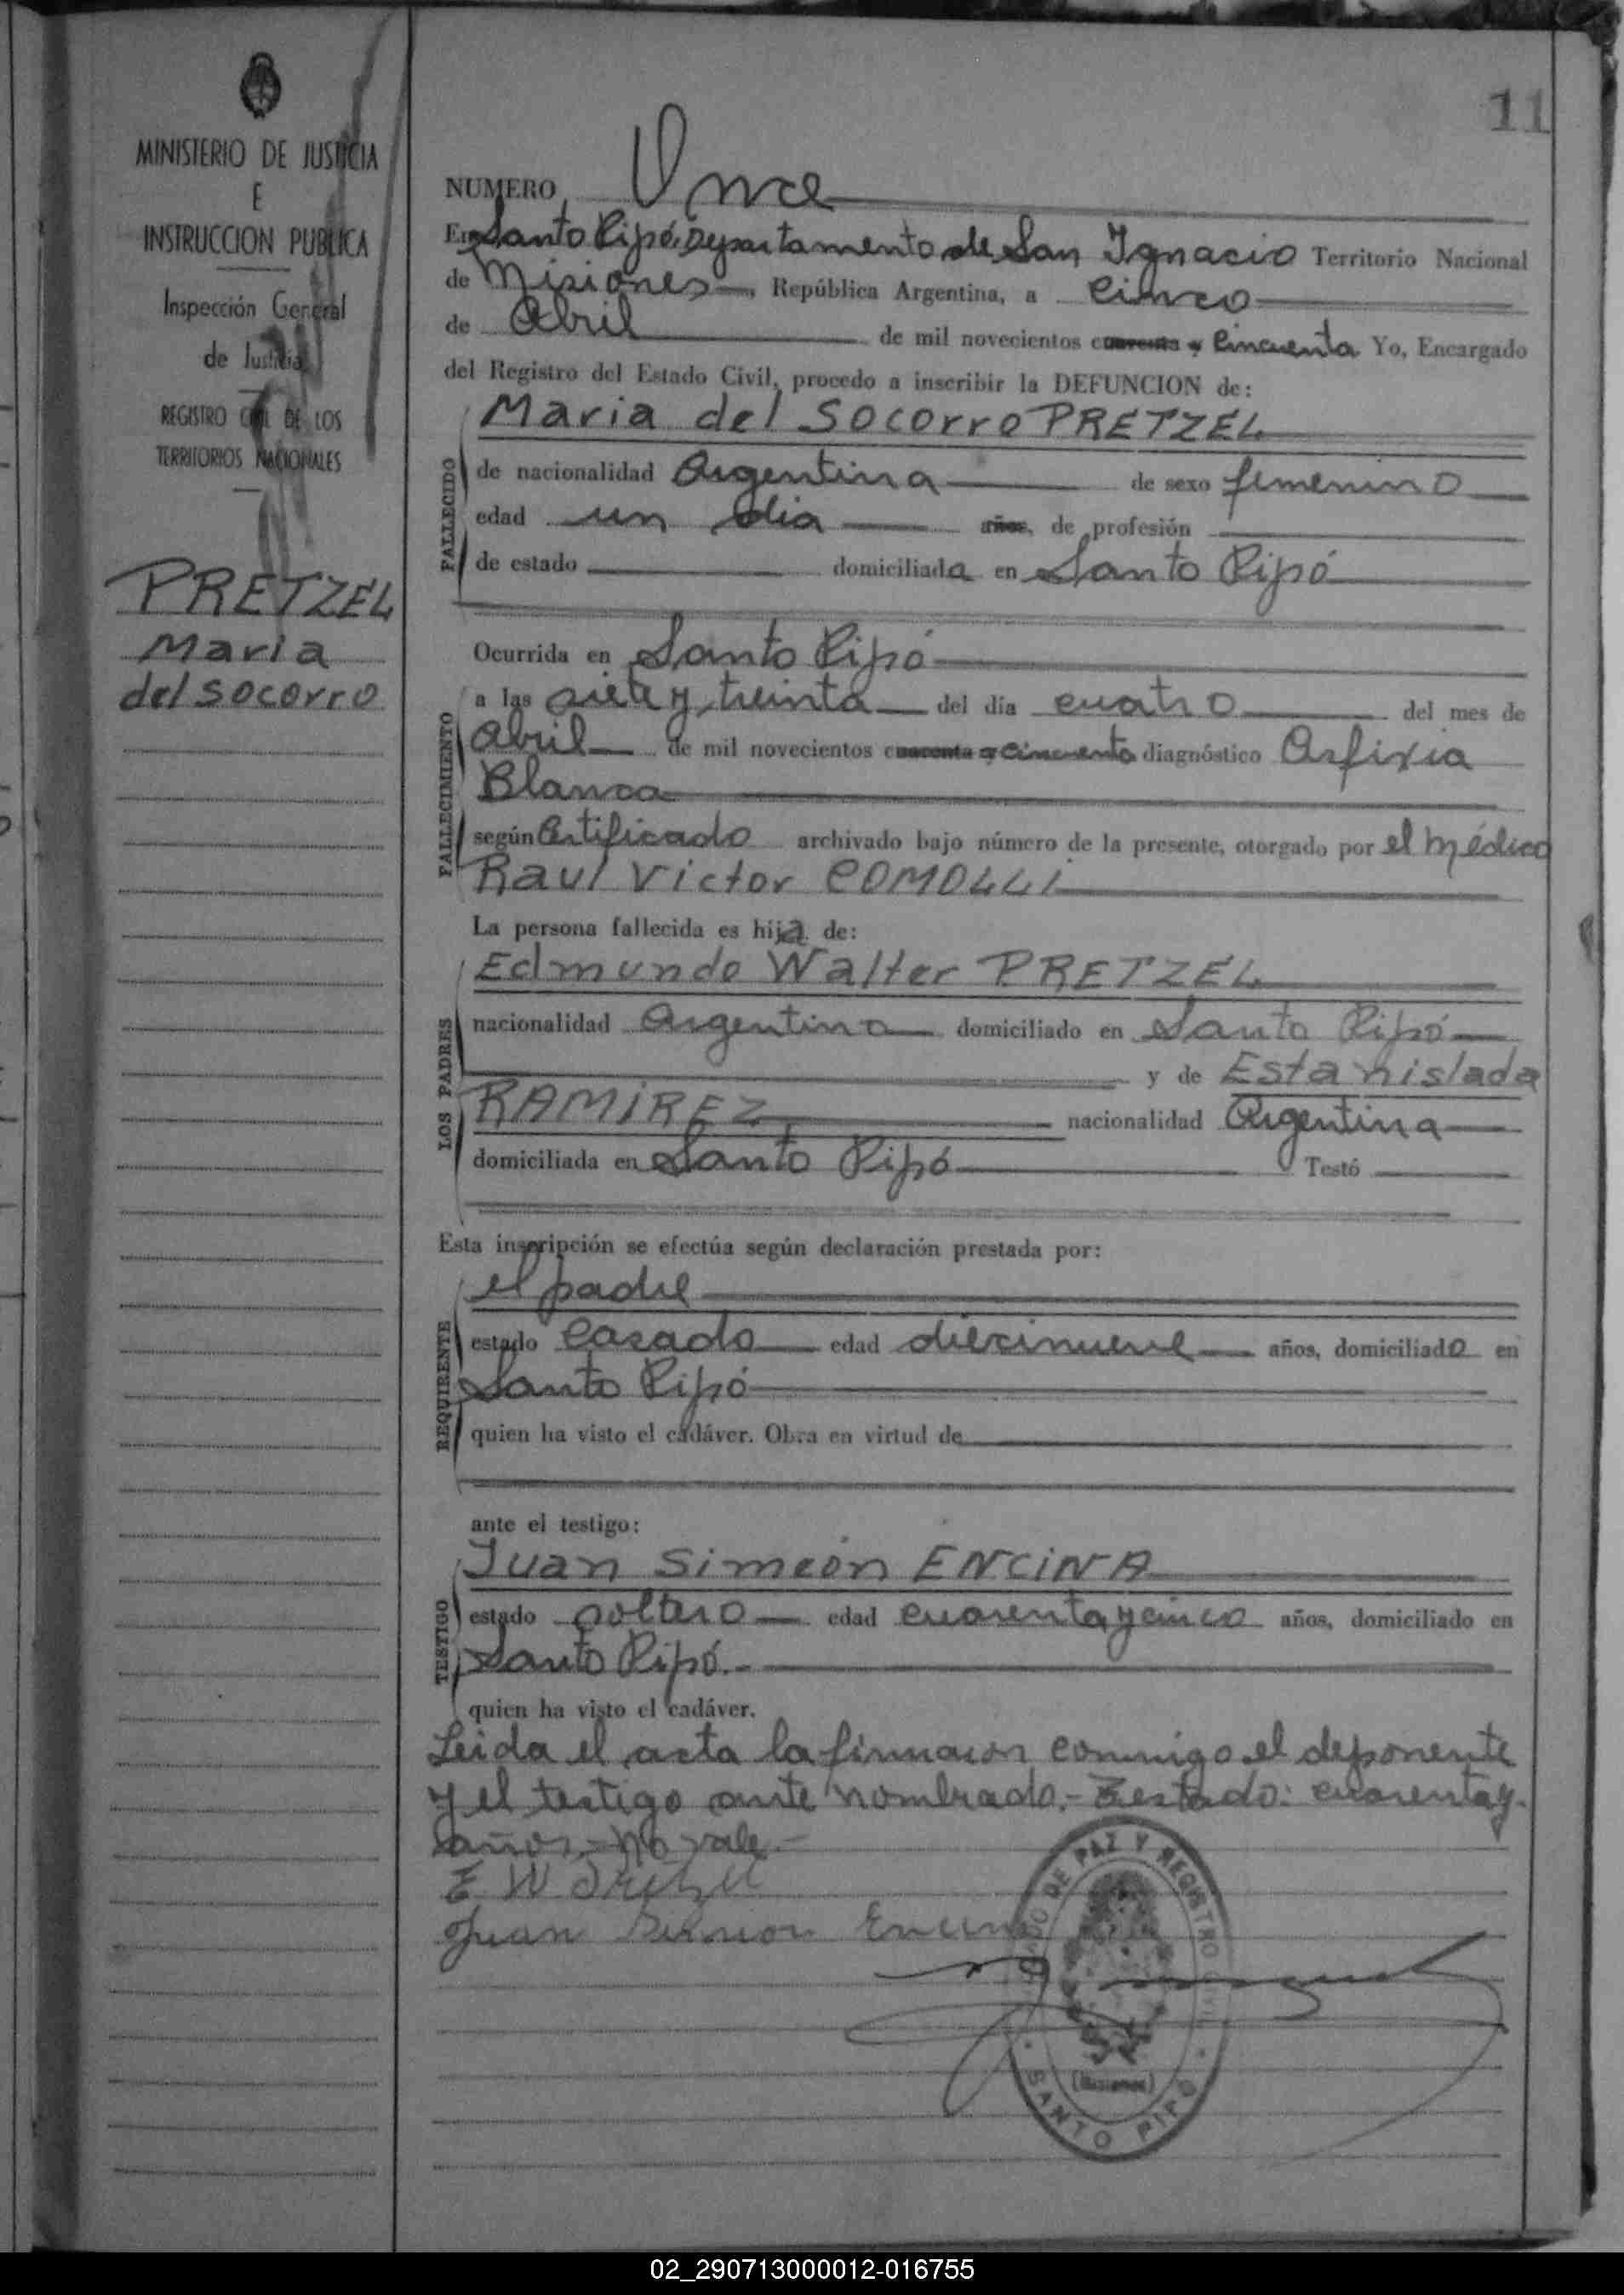 11
MINISTERIO DE JUSTICIA
E
INSTRUCCION PUBLICA
Inspección General
de Justicia
REGISTRO CIVIL DE LOS
TERRITORIOS NACIONALES
PRETZEL
Maria
del Socorro
NUMERO Once
En Santo Pipó, Departamento de San Ignacio Territorio Nacional
de Misiones, República Argentina, a Cinco
de Abril de mil novecientos cuarenta y Cincuenta Yo, Encargado
del Registro del Estado Civil, procedo a inscribir la DEFUNCION de:
FALLECIDO
Maria del Socorro PRETZEL
de nacionalidad Argentina de sexo femenino
edad un dia años, de profesión
de estado domiciliada en Santo Pipó
FALLECIMIENTO
Ocurrida en Santo Pipó
a las siete y treinta del día cuatro del mes de
Abril de mil novecientos cuarenta y cincuenta diagnóstico Asfixia
Blanca
según Certificado archivado bajo número de la presente, otorgado por el médico
Raul Victor COMOLLI
LOS PADRES
La persona fallecida es hija de:
Edmundo Walter PRETZEL
nacionalidad Argentina domiciliado en Santo Pipó
y de Estanislada
RAMIREZ nacionalidad Argentina
domiciliada en Santo Pipó Testó
REQUIRENTE
Esta inscripción se efectúa según declaración prestada por:
el padre
estado Casado edad diecinueve años, domiciliado en
Santo Pipó
quien ha visto el cadáver. Obra en virtud de
TESTIGO
ante el testigo:
Juan Simeón ENCINA
estado soltero edad cuarenta y cinco años, domiciliado en
Santo Pipó.-
quien ha visto el cadáver.
Leida el acta la firmaron conmigo el deponente
y el testigo ante nombrado.- Testado: cuarenta y.
años.- no vale.-
E W Pretzel
Juan Simeon Encina
DE PAZ Y REGISTRO CIVIL
(Misiones)
SANTO PIPÓ
02_290713000012-016755